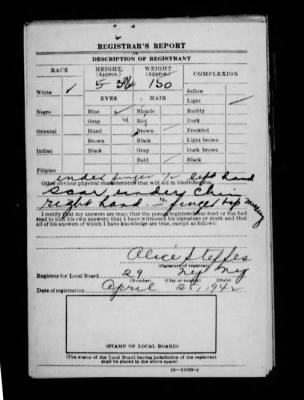 REGISTRAR'S REPORT
DESCRIPTION OF REGISTRANT
RACE HEIGHT (Approx.) WEIGHT (Approx.) COMPLEXION
5 150 Sallow
White ✓ EYES HAIR Light ✓
Negro Blue ✓ Blonde Ruddy
Gray Red Dark
Oriental Hazel Brown ✓ Freckled
Brown Black Light brown
Indian Black Gray Dark brown
Bald Black
Filipino
under finger left hand
Other obvious physical characteristics that will aid in identification
Scar under Chin
right hand. finger tip
I certify that my answers are true; that the person registered has read or has had
read to him his own answers; that I have witnessed his signature or mark and that
all of his answers of which I have knowledge are true, except as follows:
Alice Steffes
(Signature of registrar)
Registrar for Local Board 29 ny ny
(Number) (City or county) (State)
April 1942
(STAMP OF LOCAL BOARD)
(The stamp of the Local Board having jurisdiction of the registrant
shall be placed in the above space)